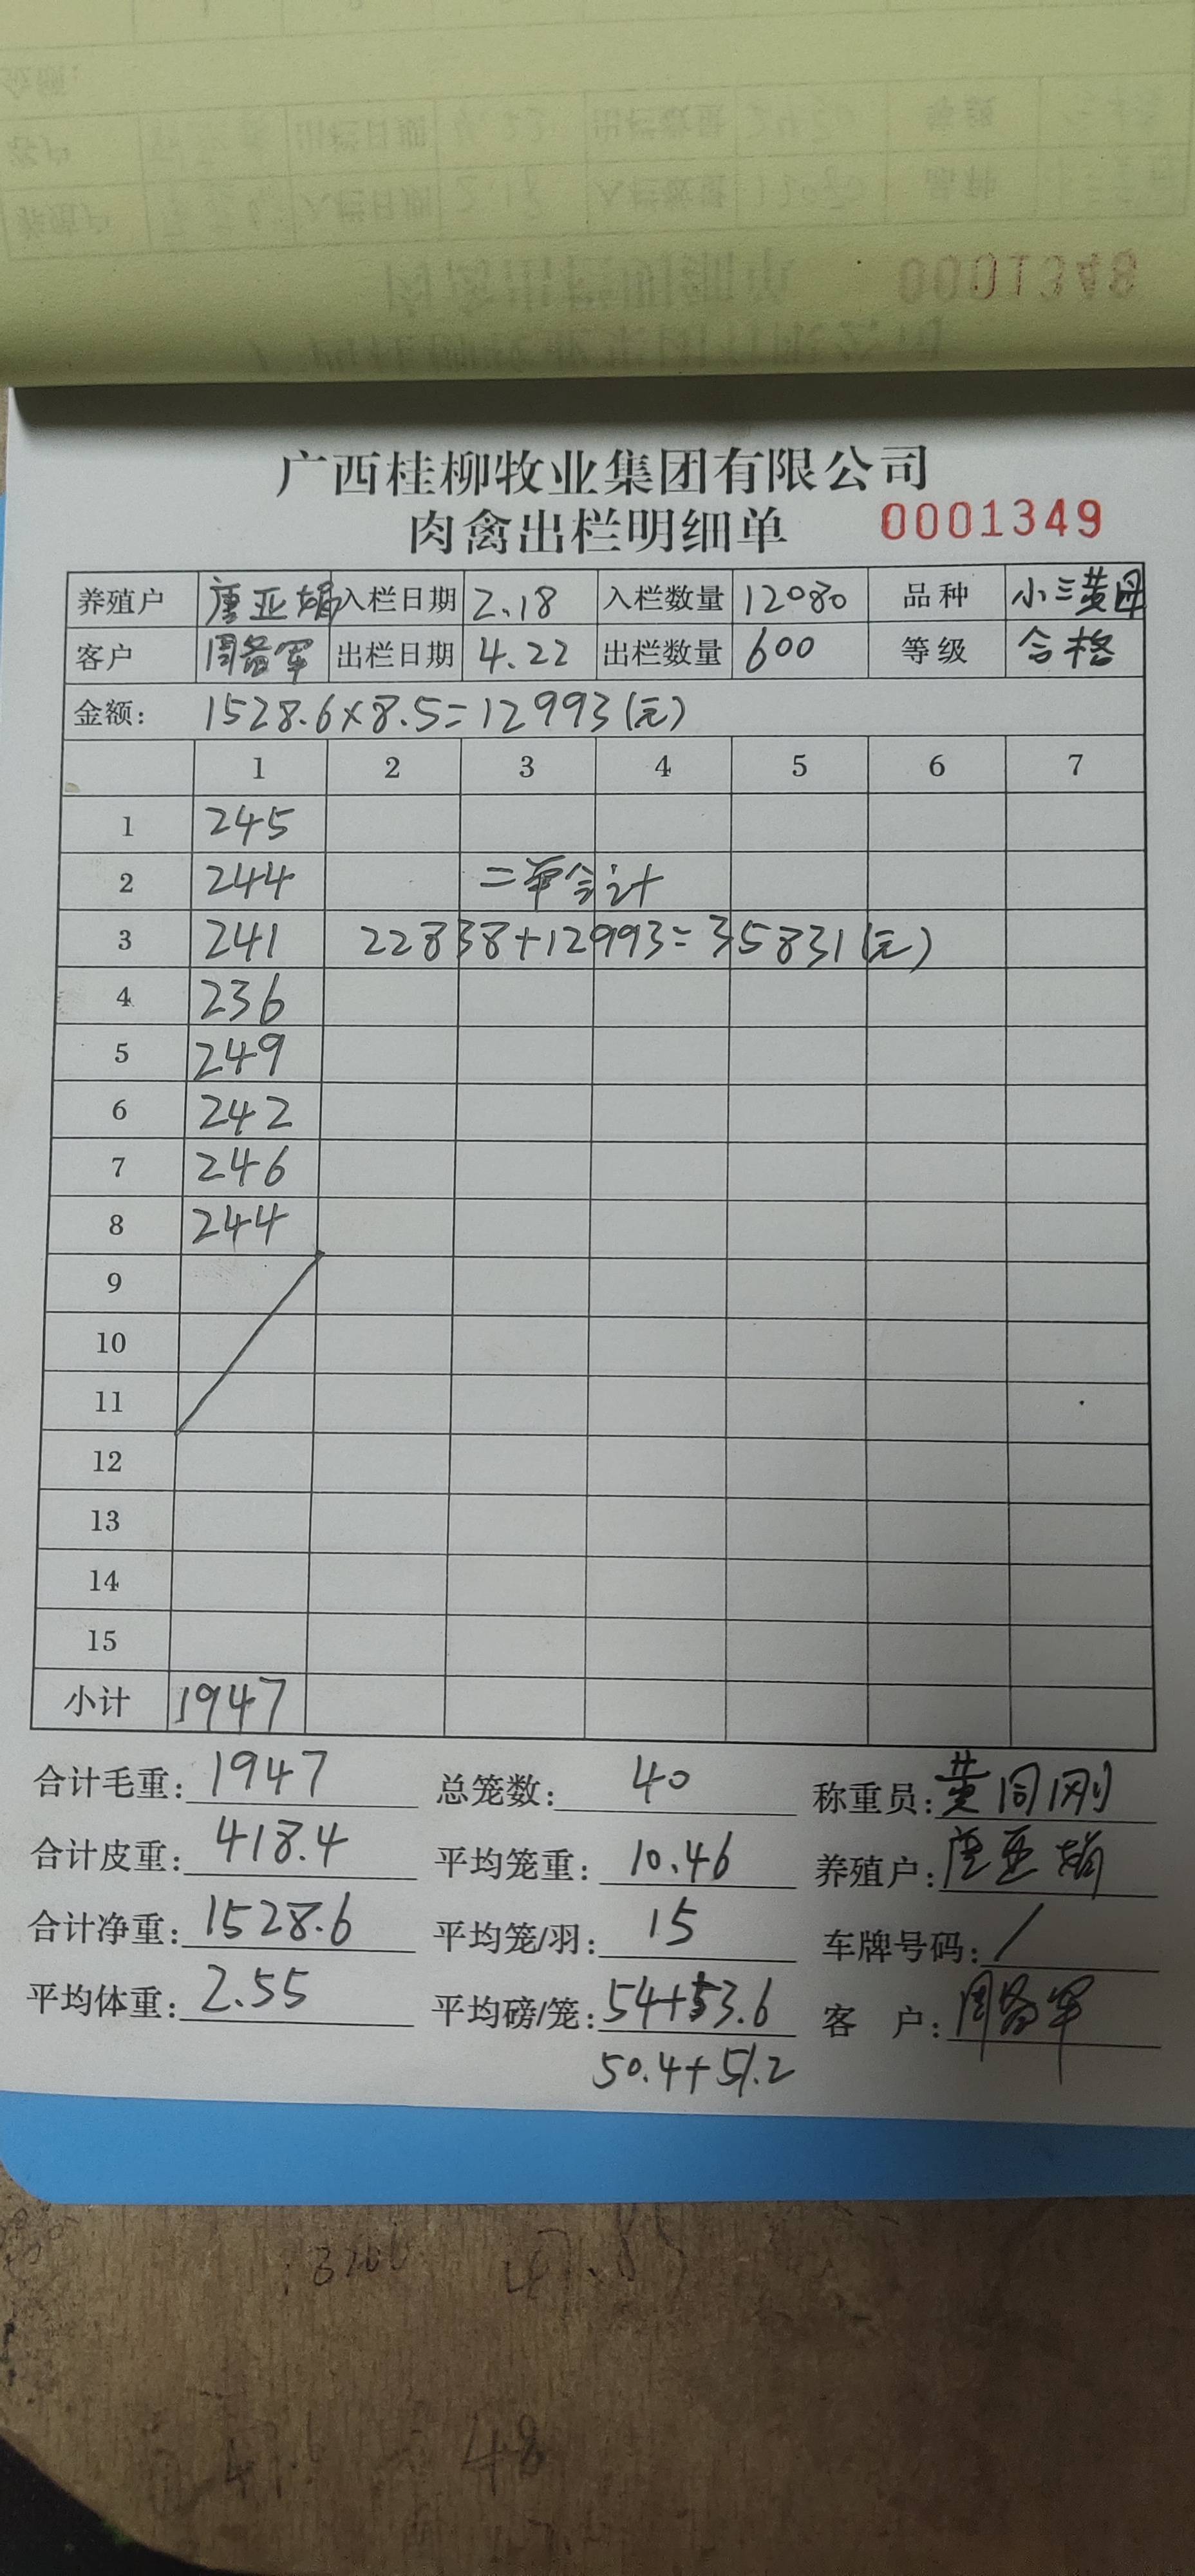 0001348
广西桂柳牧业集团有限公司
肉禽出栏明细单 0001349
养殖户 唐亚娟 入栏日期 2.18 入栏数量 12080 品种 小三黄母
客户 周备军 出栏日期 4.22 出栏数量 600 等级 合格
金额: 1528.6×8.5=12993(元)
1 2 3 4 5 6 7
1 245
2 244 二单合计
3 241 22838+12993=35831(元)
4 236
5 249
6 242
7 246
8 244
9
10
11
12
13
14
15
小计 1947
合计毛重: 1947 总笼数: 40 称重员: 黄同刚
合计皮重: 418.4 平均笼重: 10.46 养殖户: 唐亚娟
合计净重: 1528.6 平均笼/羽: 15 车牌号码: /
平均体重: 2.55 平均磅/笼: 54+53.6 客 户: 周备军
50.4+51.2
48